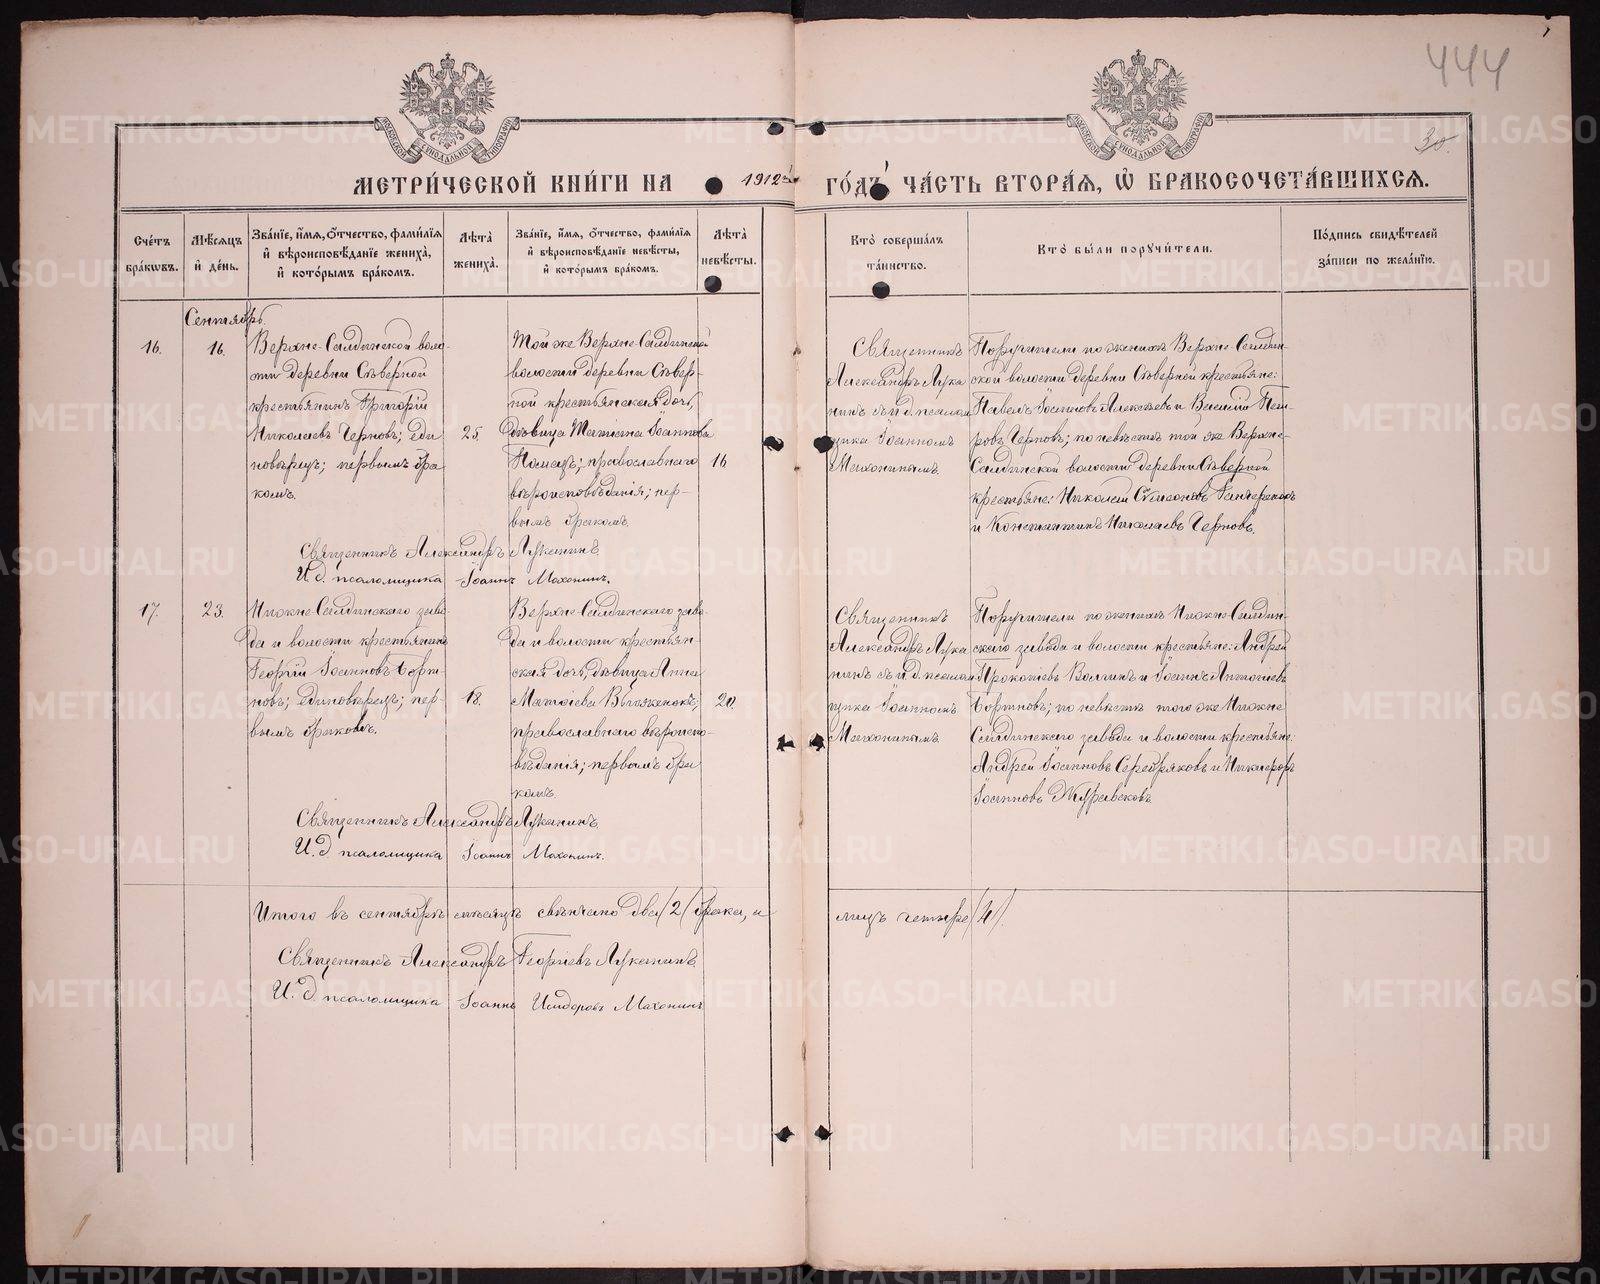 444
30.
МОСКОВСКОЙ СУНОДАЛЬНОЙ ТИПОГРАФІИ
МОСКОВСКОЙ СУНОДАЛЬНОЙ ТИПОГРАФІИ
МЕТРИ́ЧЕСКОЙ КНИ́ГИ НА 1912й ГО́ДЪ ЧА́СТЬ ВТОРА́Я, Ѡ БРАКОСОЧЕТА́ВШИХСЯ.
Сче́тъ бра́кѡвъ.
Мѣ́сяцъ и҆ де́нь.
Зва́нїе, и҆́мя, ѻ҆́тчество, фами́лїя и҆ вѣроисповѣ́данїе жениха̀, и҆ кото́рымъ бра́комъ.
Лѣ́та жениха̀.
Зва́нїе, и҆́мя, ѻ҆́тчество, фами́лїя и҆ вѣроисповѣ́данїе невѣ́сты, и҆ кото́рымъ бра́комъ.
Лѣ́та невѣ́сты.
Кто̀ соверша́лъ та́инство.
Кто̀ бы́ли порꙋчи́тели.
По́дпись свидѣ́телей за́писи по жела́нїю.
Сентябрь.
16.
16.
Верхне-Салдинской воло-
сти деревни Сѣверной
крестьянинъ Григорій
Николаевъ Черновъ; еди
новѣрецъ; первымъ бра
комъ.
25.
Той же Верхне-Салдинской
волости деревни Сѣвер-
ной крестьянская дочь,
дѣвица Татіана Іоаннова
православнаго
вѣроисповѣданія; пер-
вымъ бракомъ.
16
Священникъ
Александръ Лука
нинъ съ И.д. псалом
щика Іоанномъ
Махонинымъ.
Поручители по женихѣ Верхне-Салдин-
ской волости деревни Сѣверной крестьяне:
Павелъ Іоанновъ Алексѣевъ и Василій Пет-
ровъ Черновъ; по невѣстѣ той же Верхне-
Салдинской волости деревни Сѣверной
крестьяне: Николай Симеоновъ
и Константинъ Николаевъ Черновъ.
Священникъ Александръ Луканинъ
И.д. псаломщика Іоаннъ Махонинъ.
17.
23.
Нижне-Салдинскаго заво-
да и волости крестьянинъ
Георгій Іоанновъ Борт-
новъ; единовѣрецъ; пер-
вымъ бракомъ.
18.
Верхне-Салдинскаго заво-
да и волости крестьян-
ская дочь, дѣвица Анна
Матѳіева
православнаго вѣроиспо-
вѣданія; первымъ бра
комъ.
20.
Священникъ
Александръ Лука
нинъ съ И.д. псалом
щика Іоанномъ
Махонинымъ.
Поручители по женихѣ Нижне-Салдин-
скаго завода и волости крестьяне: Андрей
Прокопіевъ Волгинъ и Іоаннъ Антоніевъ
Бортновъ; по невѣстѣ того же Нижне
Салдинскаго завода и волости крестьяне:
Андрей Іоанновъ Серебряковъ и Никифоръ
Іоанновъ Журавсковъ.
Священникъ Александръ Луканинъ.
И.д псаломщика Іоаннъ Махонинъ.
Итого въ сентябрѣ мѣсяцѣ свѣнчано два /2/ брака, а лицъ четыре /4/.
Священникъ Александръ Георгіевъ Луканинъ.
И.д псаломщика Іоаннъ Исидоровъ Махонинъ
METRIKI.GASO-URAL.RU